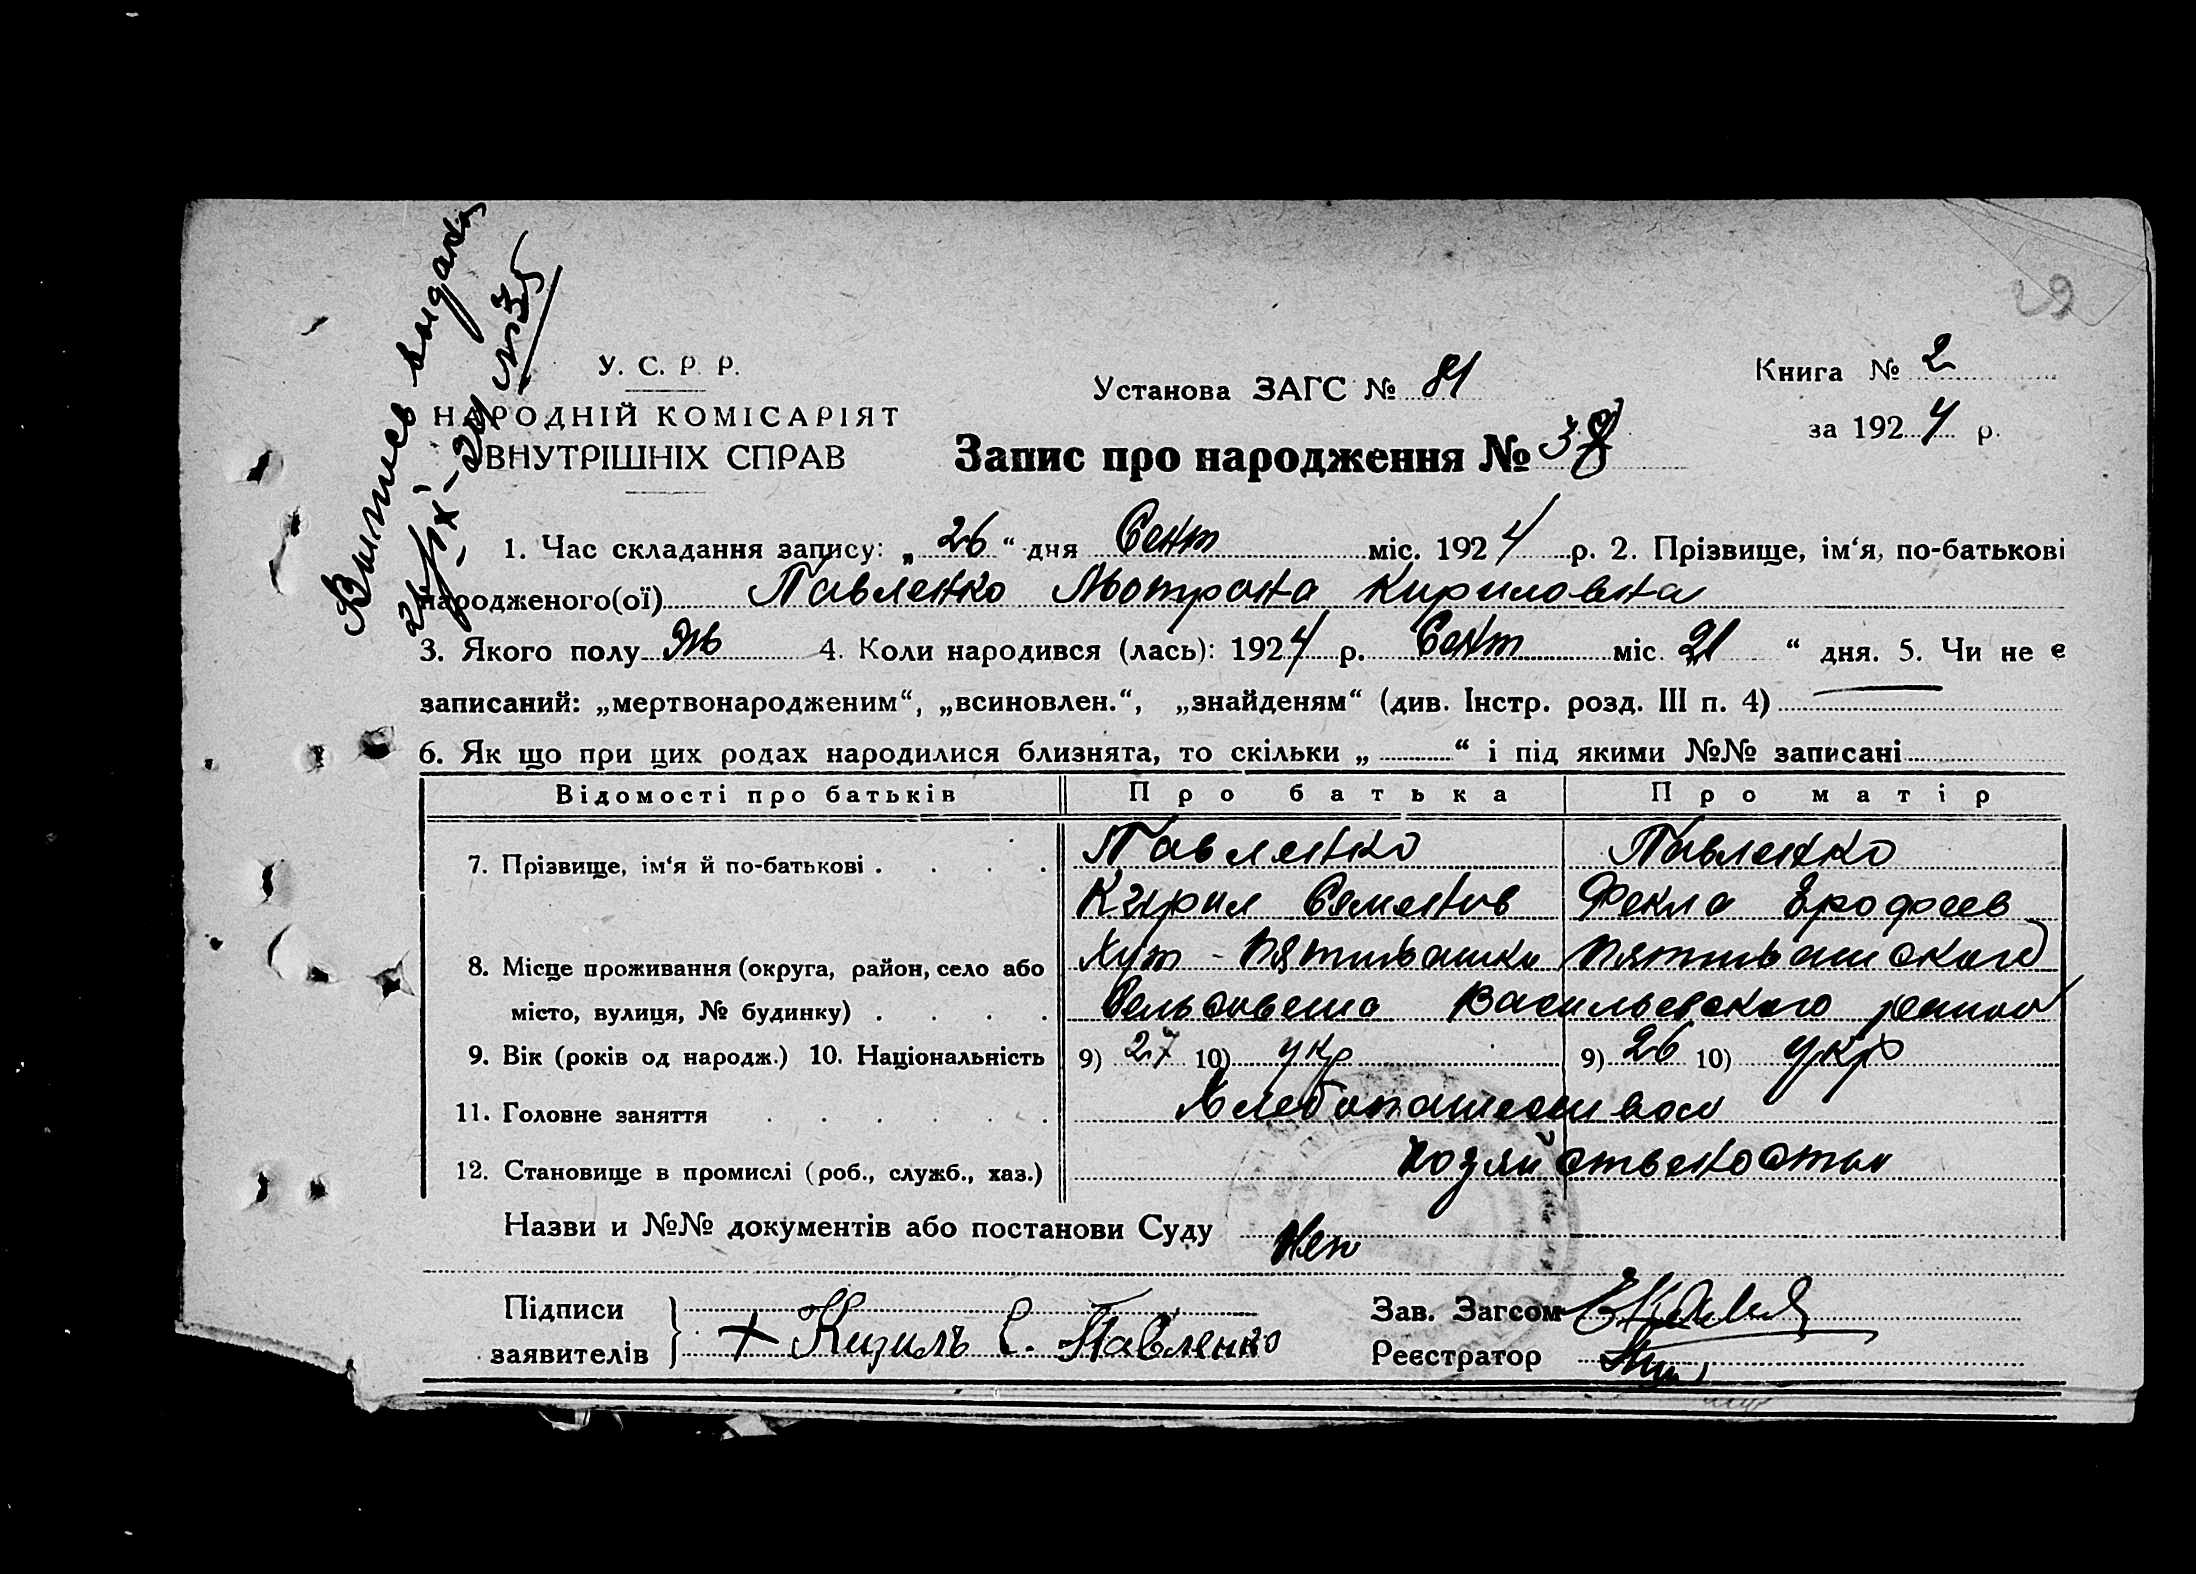 29
Выпись выдана
У. С. Р. Р.
НАРОДНІЙ КОМІСАРІЯТ
ВНУТРІШНІХ СПРАВ
Установа ЗАГС № 81
Книга № 2
за 1924 р.
Запис про народження № 38
1. Час складання запису: „ 26 “ дня Сент міс. 1924 р. 2. Прізвище, ім‘я, по-батькові
народженого(ої) Павленко Мотрона Кириловна
3. Якого полу Жв 4. Коли народився (лась): 1924 р. Сент міс. 21 “ дня. 5. Чи не є
записаний: „мертвонародженим“, „всиновлен.“, „знайденям“ (див. Інстр. розд. III п. 4)
6. Як що при цих родах народилися близнята, то скільки „ “ і під якими №№ записані
Відомості про батьків Про батька Про матір
7. Прізвище, ім‘я й по-батькові . . . . Павленко Павленко
Кирил Семенов Фекла Ерофеев
8. Місце проживання (округа, район, село або Хут - Пятиивашки Пятиивашского
місто, вулиця, № будинку) . . . . Сельсовета Васильевского района
9. Вік (років од народж.) 10. Національність 9) 27 10) укр 9) 26 10) укр
11. Головне заняття . . . . . . Хлебопашеством
12. Становище в промислі (роб., служб., хаз.)
Назви и №№ документів або постанови Суду Нет
Підписи
заявителів + Кирилъ С. Павленко
Зав. Загсом
Реєстратор